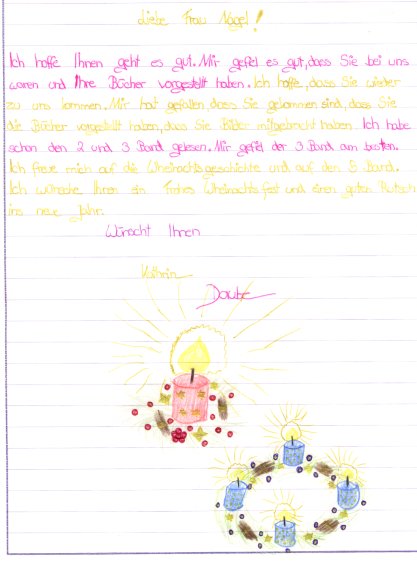 Liebe Frau Nagel!
Ich hoffe Ihnen geht es gut. Mir gefiel es gut, dass Sie bei uns
waren und Ihre Bücher vorgestellt haben. Ich hoffe, dass Sie wieder
zu uns kommen. Mir hat gefallen, dass Sie gekommen sind, dass Sie
die Bücher vorgestellt haben, dass Sie Bilder mitgebracht haben. Ich habe
schon den 2 und 3 Band gelesen. Mir gefiel der 3 Band am besten.
Ich freue mich auf die Wheinachtsgeschichte und auf den 5 Band.
Ich wünsche Ihnen ein Frohes Wheinachtsfest und einen guten Rutsch
ins neue Jahr.
Wünscht Ihnen
Kathrin
Daube